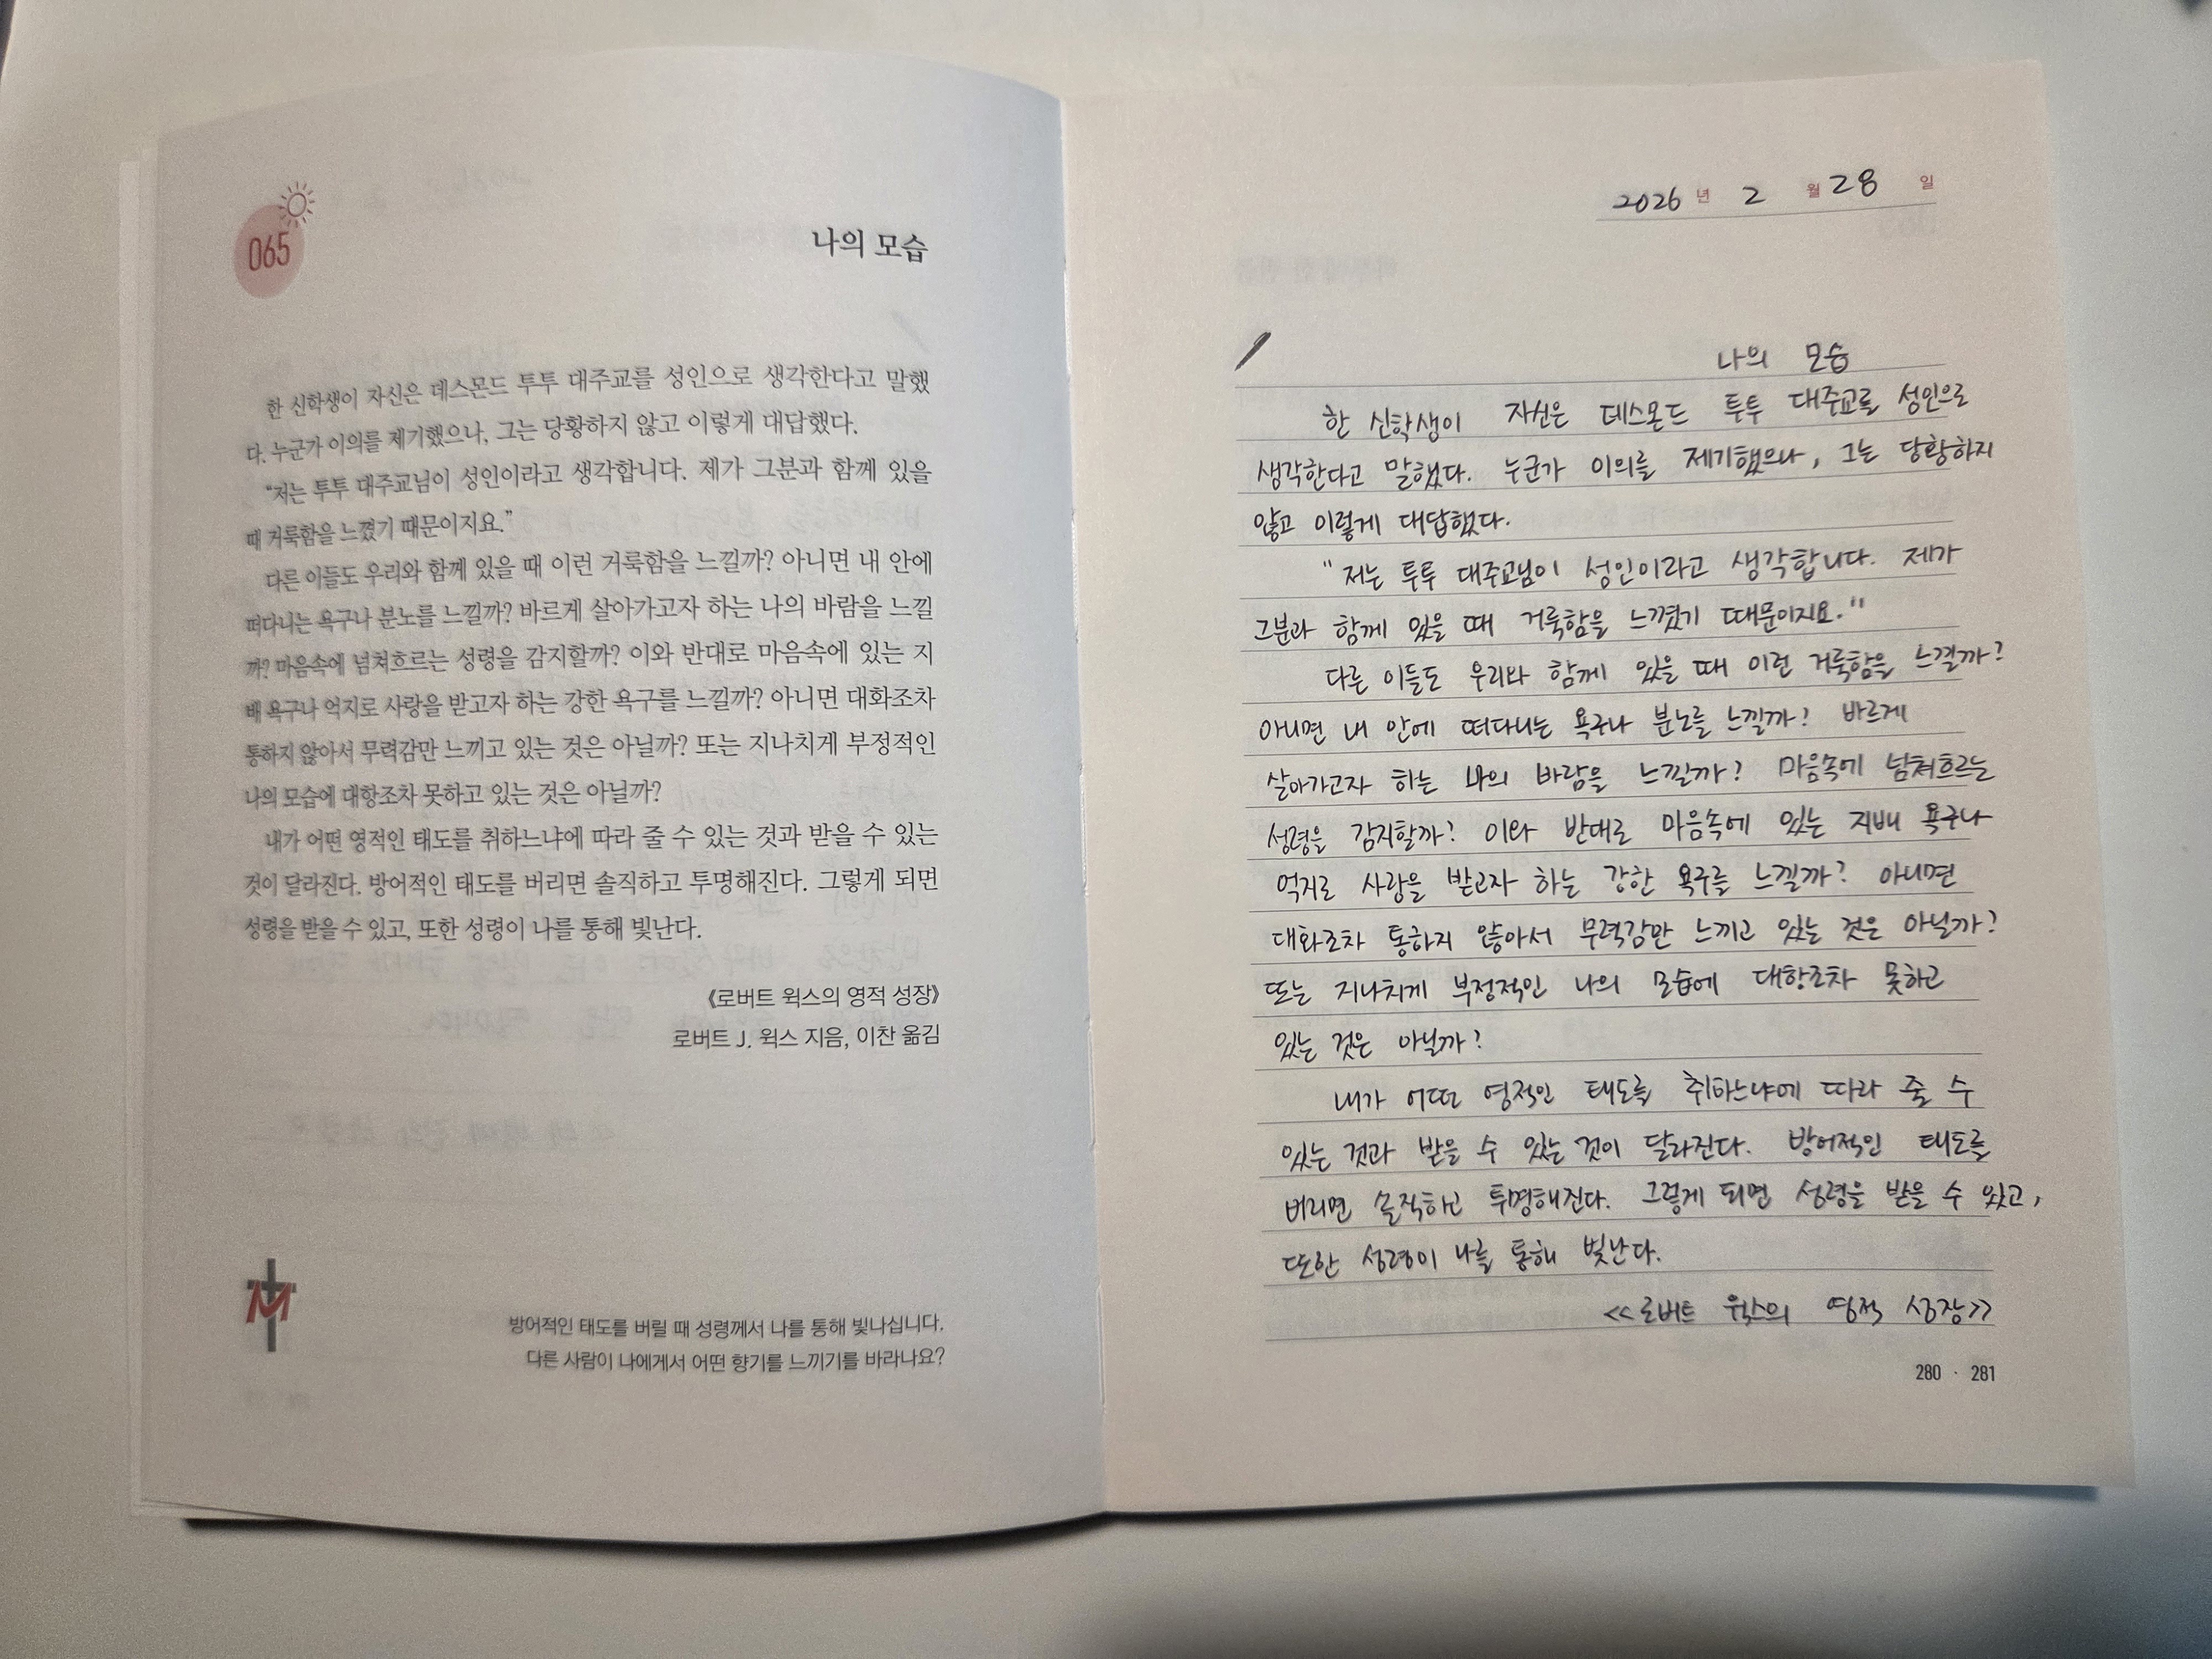 065
나의 모습
한 신학생이 자신은 데스몬드 투투 대주교를 성인으로 생각한다고 말했
다. 누군가 이의를 제기했으나, 그는 당황하지 않고 이렇게 대답했다.
“저는 투투 대주교님이 성인이라고 생각합니다. 제가 그분과 함께 있을
때 거룩함을 느꼈기 때문이지요.”
다른 이들도 우리와 함께 있을 때 이런 거룩함을 느낄까? 아니면 내 안에
떠다니는 욕구나 분노를 느낄까? 바르게 살아가고자 하는 나의 바람을 느낄
까? 마음속에 넘쳐흐르는 성령을 감지할까? 이와 반대로 마음속에 있는 지
배 욕구나 억지로 사랑을 받고자 하는 강한 욕구를 느낄까? 아니면 대화조차
통하지 않아서 무력감만 느끼고 있는 것은 아닐까? 또는 지나치게 부정적인
나의 모습에 대항조차 못하고 있는 것은 아닐까?
내가 어떤 영적인 태도를 취하느냐에 따라 줄 수 있는 것과 받을 수 있는
것이 달라진다. 방어적인 태도를 버리면 솔직하고 투명해진다. 그렇게 되면
성령을 받을 수 있고, 또한 성령이 나를 통해 빛난다.
《로버트 윅스의 영적 성장》
로버트 J. 윅스 지음, 이찬 옮김
M
방어적인 태도를 버릴 때 성령께서 나를 통해 빛나십니다.
다른 사람이 나에게서 어떤 향기를 느끼기를 바라나요?
2026 년 2 월 28 일
나의 모습
한 신학생이 자신은 데스몬드 투투 대주교를 성인으로
생각한다고 말했다. 누군가 이의를 제기했으나, 그는 당황하지
않고 이렇게 대답했다.
"저는 투투 대주교님이 성인이라고 생각합니다. 제가
그분과 함께 있을 때 거룩함을 느꼈기 때문이지요."
다른 이들도 우리와 함께 있을 때 이런 거룩함을 느낄까?
아니면 내 안에 떠다니는 욕구나 분노를 느낄까? 바르게
살아가고자 하는 나의 바람을 느낄까? 마음속에 넘쳐흐르는
성령을 감지할까? 이와 반대로 마음속에 있는 지배 욕구나
억지로 사랑을 받고자 하는 강한 욕구를 느낄까? 아니면
대화조차 통하지 않아서 무력감만 느끼고 있는 것은 아닐까?
또는 지나치게 부정적인 나의 모습에 대항조차 못하고
있는 것은 아닐까?
내가 어떤 영적인 태도를 취하느냐에 따라 줄 수
있는 것과 받을 수 있는 것이 달라진다. 방어적인 태도를
버리면 솔직하고 투명해진다. 그렇게 되면 성령을 받을 수 있고,
또한 성령이 나를 통해 빛난다.
<<로버트 윅스의 영적 성장>>
280 · 281